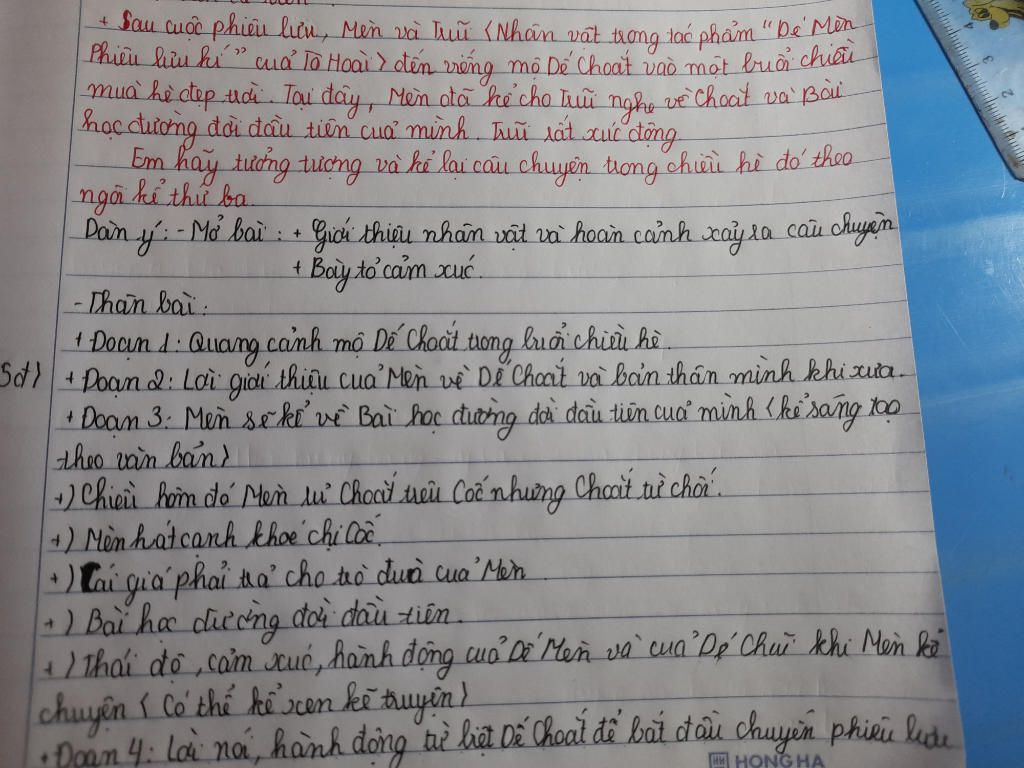 + Sau cuộc phiêu lưu, Mèn và Trũi (Nhân vật trong tác phẩm "Dế Mèn
Phiêu lưu kí" của Tô Hoài) đến viếng mộ Dế Choắt vào một buổi chiều
mùa hè đẹp trời. Tại đây, Mèn đã kể cho Trũi nghe về Choắt và Bài
học đường đời đầu tiên của mình. Trũi rất xúc động
Em hãy tưởng tượng và kể lại câu chuyện trong chiều hè đó theo
ngôi kể thứ ba.
Dàn ý: - Mở bài: + Giới thiệu nhân vật và hoàn cảnh xảy ra câu chuyện
+ Bày tỏ cảm xúc.
- Thân bài:
+ Đoạn 1: Quang cảnh mộ Dế Choắt trong buổi chiều hè.
+ Đoạn 2: Lời giới thiệu của Mèn về Dế Choắt và bản thân mình khi xưa.
+ Đoạn 3: Mèn sẽ kể về Bài học đường đời đầu tiên của mình (kể sáng tạo
theo văn bản)
+) Chiều hôm đó Mèn rủ Choắt trêu Cốc nhưng Choắt từ chối.
+) Mèn hát cạnh khoé chị Cốc.
+) Cái giá phải trả cho trò đùa của Mèn
+) Bài học đường đời đầu tiên.
+) Thái độ, cảm xúc, hành động của Dế Mèn và của Dế Chũi khi Mèn kể
chuyện (Có thể kể xen kẽ truyện)
+ Đoạn 4: Lời nói, hành động từ biệt Dế Choắt để bắt đầu chuyến phiêu lưu
HONG HA